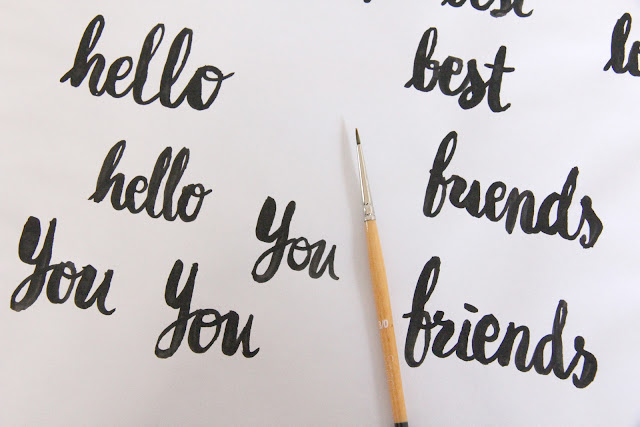 hello
hello
you
you
you
best
best
friends
friends